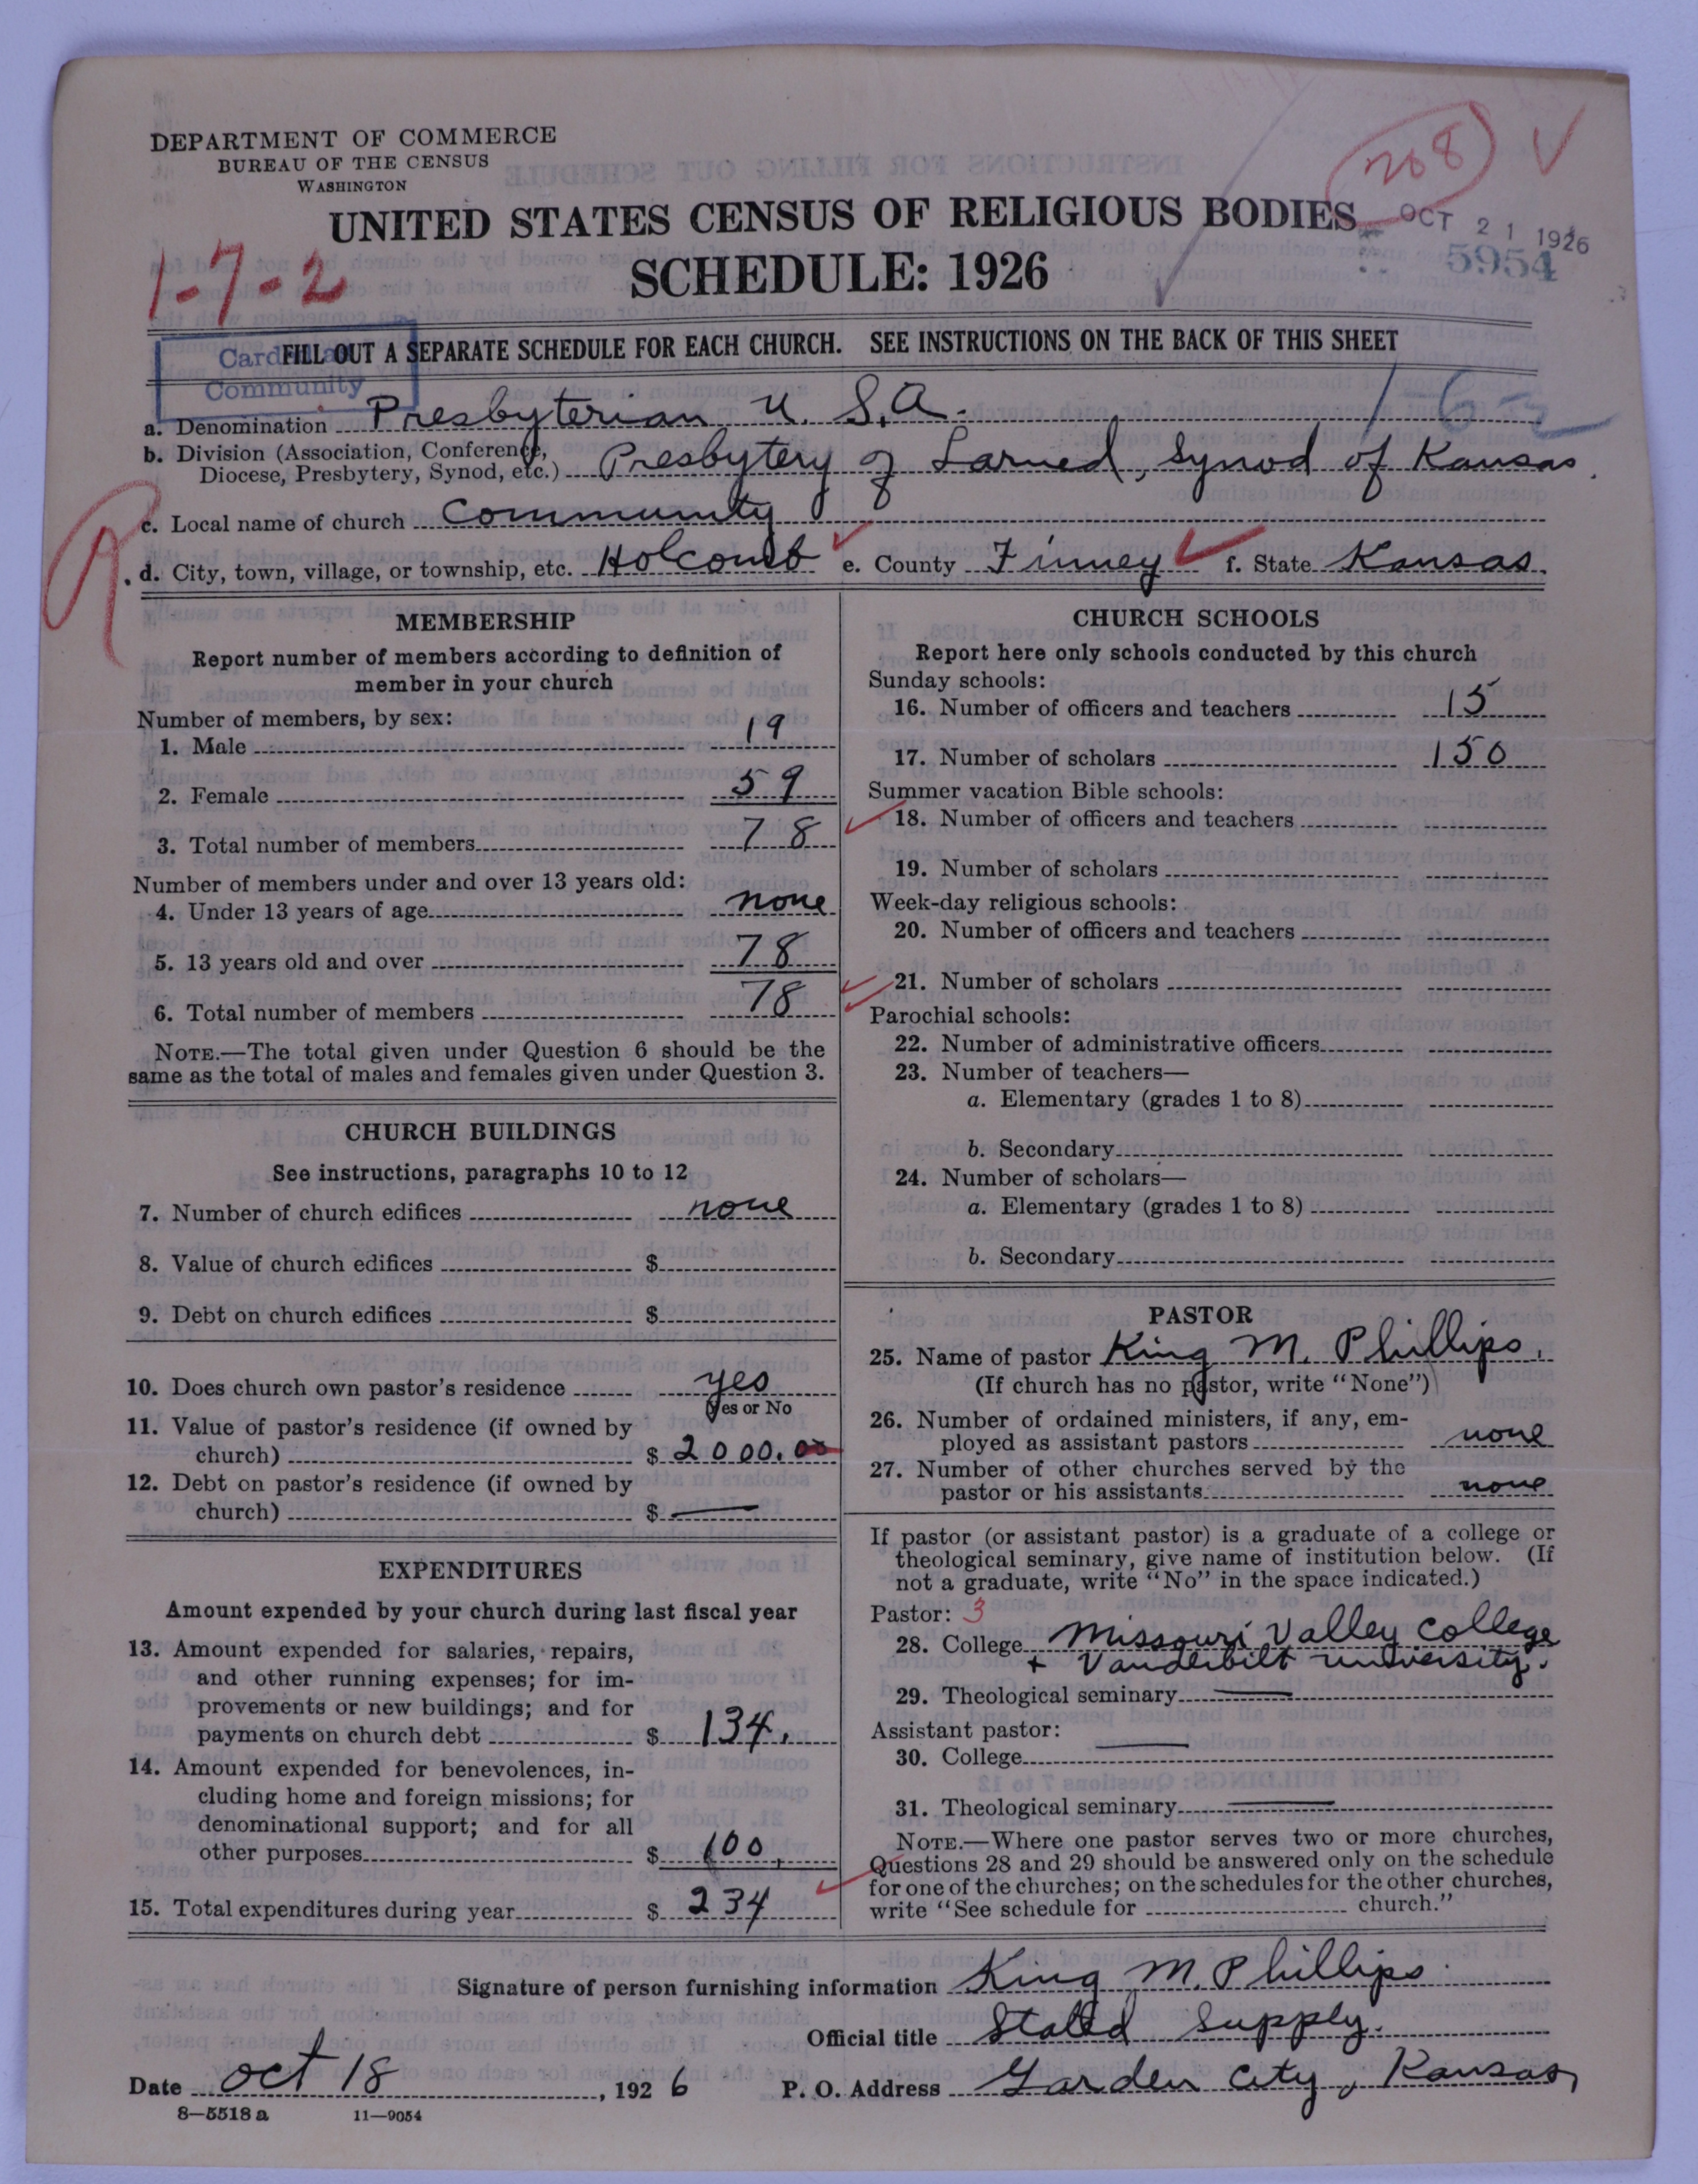 DEPARTMENT OF COMMERCE
BUREAU OF THE CENSUS
WASHINGTON
UNITED STATES CENSUS OF RELIGIOUS BODIES
SCHEDULE: 1926
208
OCT 21 1926
5954
1-7-2
FILL OUT A SEPARATE SCHEDULE FOR EACH CHURCH. SEE INSTRUCTIONS ON THE BACK OF THIS SHEET
Card
Community
a. Denomination Presbyterian U. S. A.
b. Division (Association, Conference,
Diocese, Presbytery, Synod, etc.) Presbytery of Larned, Synod of Kansas.
c. Local name of church Community
d. City, town, village, or township, etc. Holcomb e. County Finney f. State Kansas.
MEMBERSHIP
Report number of members according to definition of
member in your church
Number of members, by sex:
1. Male 19
2. Female 59
3. Total number of members 78
Number of members under and over 13 years old:
4. Under 13 years of age none
5. 13 years old and over 78
6. Total number of members 78
NOTE.—The total given under Question 6 should be the
same as the total of males and females given under Question 3.
CHURCH BUILDINGS
See instructions, paragraphs 10 to 12
7. Number of church edifices none
8. Value of church edifices $
9. Debt on church edifices $
10. Does church own pastor's residence yes
Yes or No
11. Value of pastor's residence (if owned by
church) $ 2000.00
12. Debt on pastor's residence (if owned by
church) $ —
EXPENDITURES
Amount expended by your church during last fiscal year
13. Amount expended for salaries, repairs,
and other running expenses; for im-
provements or new buildings; and for
payments on church debt $ 134.
14. Amount expended for benevolences, in-
cluding home and foreign missions; for
denominational support; and for all
other purposes $ 100.
15. Total expenditures during year $ 234
CHURCH SCHOOLS
Report here only schools conducted by this church
Sunday schools:
16. Number of officers and teachers 15
17. Number of scholars 150
Summer vacation Bible schools:
18. Number of officers and teachers
19. Number of scholars
Week-day religious schools:
20. Number of officers and teachers
21. Number of scholars
Parochial schools:
22. Number of administrative officers
23. Number of teachers—
a. Elementary (grades 1 to 8)
b. Secondary
24. Number of scholars—
a. Elementary (grades 1 to 8)
b. Secondary
PASTOR
25. Name of pastor King M. Phillips.
(If church has no pastor, write "None")
26. Number of ordained ministers, if any, em-
ployed as assistant pastors none
27. Number of other churches served by the
pastor or his assistants none
If pastor (or assistant pastor) is a graduate of a college or
theological seminary, give name of institution below. (If
not a graduate, write "No" in the space indicated.)
Pastor: 3
28. College Missouri Valley College
+ Vanderbilt University.
29. Theological seminary —
Assistant pastor:
30. College —
31. Theological seminary —
NOTE.—Where one pastor serves two or more churches,
Questions 28 and 29 should be answered only on the schedule
for one of the churches; on the schedules for the other churches,
write "See schedule for church."
Signature of person furnishing information King M. Phillips
Official title Stated Supply.
Date Oct 18, 1926 P. O. Address Garden City, Kansas,
8—5518a 11—9054